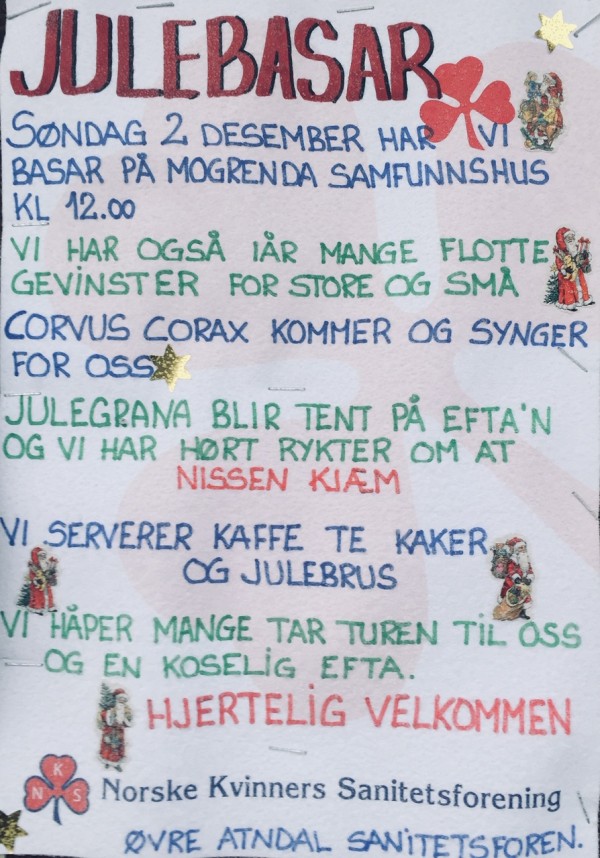 JULEBASAR
SØNDAG 2 DESEMBER HAR VI
BASAR PÅ MOGRENDA SAMFUNNSHUS
KL 12.00
VI HAR OGSÅ IÅR MANGE FLOTTE
GEVINSTER FOR STORE OG SMÅ
CORVUS CORAX KOMMER OG SYNGER
FOR OSS
JULEGRANA BLIR TENT PÅ EFTA'N
OG VI HAR HØRT RYKTER OM AT
NISSEN KJÆM
VI SERVERER KAFFE TE KAKER
OG JULEBRUS
VI HÅPER MANGE TAR TUREN TIL OSS
OG EN KOSELIG EFTA.
HJERTELIG VELKOMMEN
N K S
Norske Kvinners Sanitetsforening
ØVRE ATNDAL SANITETSFOREN.